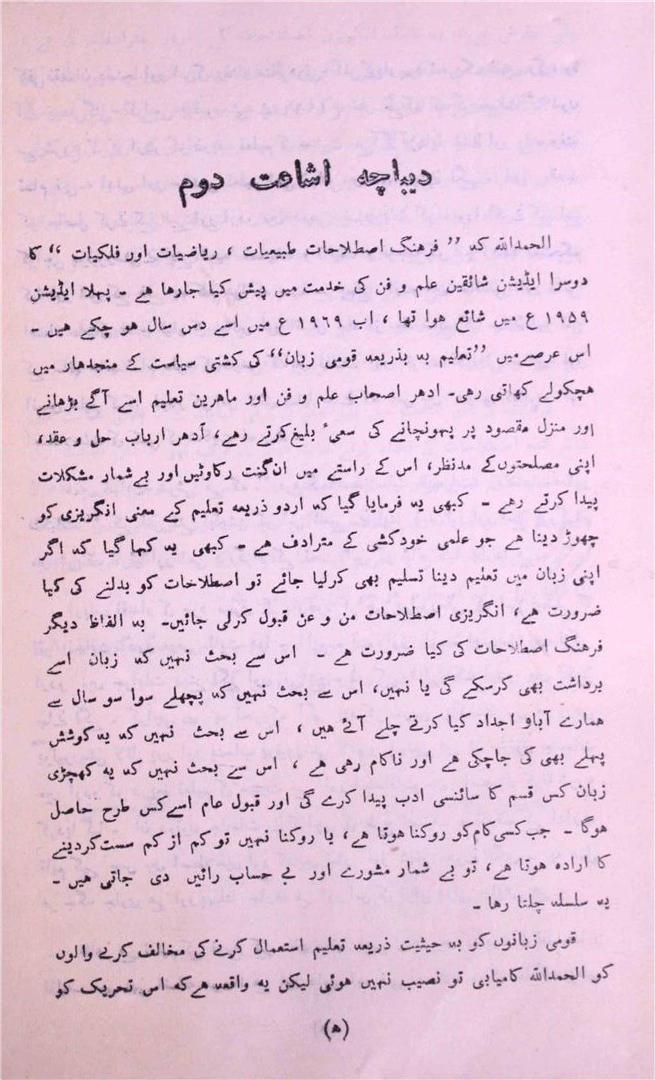 دیباچہ اشاعت دوم
الحمدللہ کہ ” فرہنگ اصطلاحات طبیعیات ، ریاضیات اور فلکیات “ کا
دوسرا ایڈیشن شائقین علم و فن کی خدمت میں پیش کیا جارہا ہے ۔ پہلا ایڈیشن
۱۹۵۹ ع میں شائع ہوا تھا ، اب ۱۹۶۹ ع میں اسے دس سال ہو چکے ہیں ۔
اس عرصےمیں ”تعلیم بہ بذریعہ قومی زبان“ کی کشتی سیاست کے منجدھار میں
ہچکولے کھاتی رہی۔ ادھر اصحاب علم و فن اور ماہرین تعلیم اسے آگے بڑھانے
اور منزل مقصود پر پہونچانے کی سعیٔ بلیغ کرتے رہے، اُدھر ارباب حل و عقد،
اپنی مصلحتوں کے مدنظر، اس کے راستے میں ان گنت رکاوٹیں اور بےشمار مشکلات
پیدا کرتے رہے ۔ کبھی یہ فرمایا گیا کہ اردو ذریعہ تعلیم کے معنی انگریزی کو
چھوڑ دینا ہے جو علمی خودکشی کے مترادف ہے ۔ کبھی یہ کہا گیا کہ اگر
اپنی زبان میں تعلیم دینا تسلیم بھی کرلیا جائے تو اصطلاحات کو بدلنے کی کیا
ضرورت ہے، انگریزی اصطلاحات من و عن قبول کرلی جائیں۔ بہ الفاظ دیگر
فرہنگ اصطلاحات کی کیا ضرورت ہے ۔ اس سے بحث نہیں کہ زبان اسے
برداشت بھی کرسکے گی یا نہیں، اس سے بحث نہیں کہ پچھلے سوا سو سال سے
ہمارے آباو اجداد کیا کرتے چلے آئے ہیں ، اس سے بحث نہیں کہ یہ کوشش
پہلے بھی کی جاچکی ہے اور ناکام رہی ہے ، اس سے بحث نہیں کہ یہ کھچڑی
زبان کس قسم کا سائنسی ادب پیدا کرے گی اور قبول عام اسے کس طرح حاصل
ہوگا ۔ جب کسی کام کو روکنا ہوتا ہے، یا روکنا نہیں تو کم از کم سست کردینے
کا ارادہ ہوتا ہے، تو بے شمار مشورے اور بے حساب رائیں دی جاتی ہیں ۔
یہ سلسلہ چلتا رہا ۔
قومی زبانوں کو بہ حیثیت ذریعہ تعلیم استعمال کرنے کی مخالف کرنے والوں
کو الحمدللہ کامیابی تو نصیب نہیں ہوئی لیکن یہ واقعہ ہے کہ اس تحریک کو
(ھ)